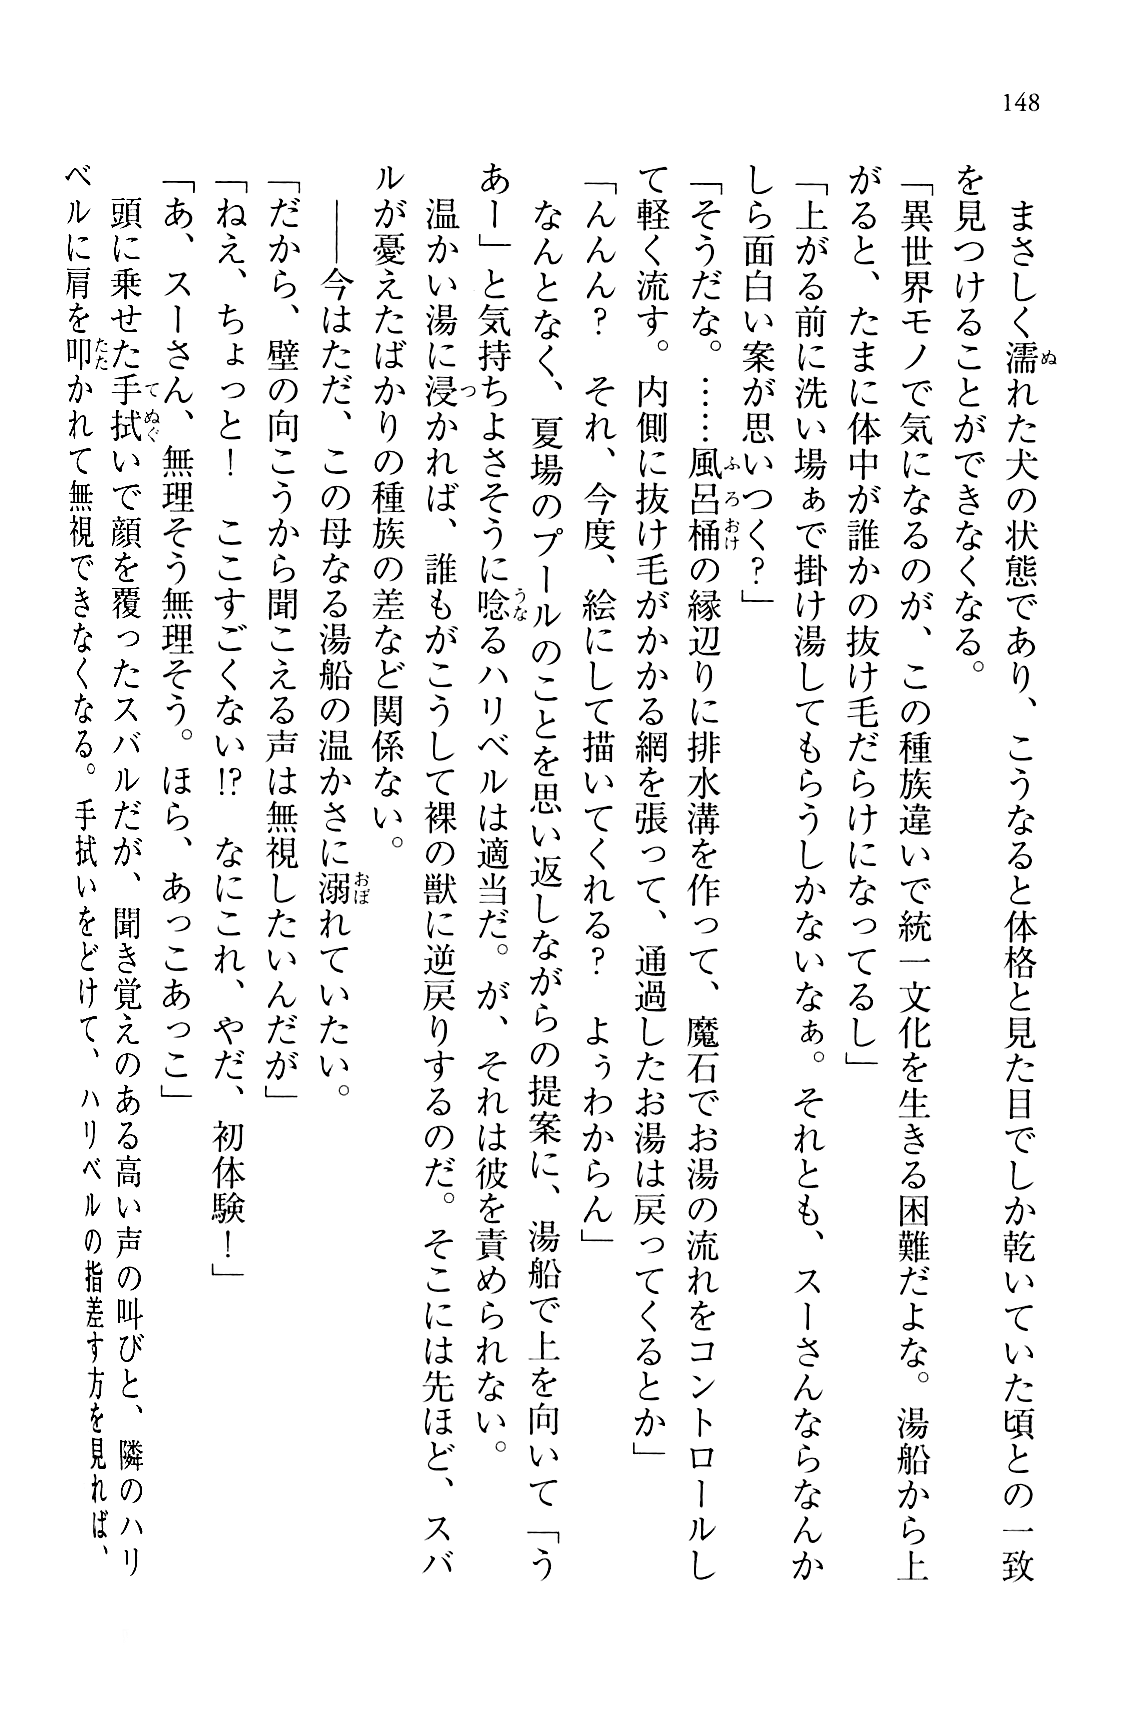 148
　まさしく濡れた犬の状態であり、こうなると体格と見た目でしか乾いていた頃との一致
を見つけることができなくなる。
「異世界モノで気になるのが、この種族違いで統一文化を生きる困難だよな。湯船から上
がると、たまに体中が誰かの抜け毛だらけになってるし」
「上がる前に洗い場ぁで掛け湯してもらうしかないなぁ。それとも、スーさんならなんか
しら面白い案が思いつく？」
「そうだな。……風呂桶の縁辺りに排水溝を作って、魔石でお湯の流れをコントロールし
て軽く流す。内側に抜け毛がかかる網を張って、通過したお湯は戻ってくるとか」
「んんん？　それ、今度、絵にして描いてくれる？　よぅわからん」
　なんとなく、夏場のプールのことを思い返しながらの提案に、湯船で上を向いて「う
あー」と気持ちよさそうに唸るハリベルは適当だ。が、それは彼を責められない。
　温かい湯に浸かれば、誰もがこうして裸の獣に逆戻りするのだ。そこには先ほど、スバ
ルが憂えたばかりの種族の差など関係ない。
　――今はただ、この母なる湯船の温かさに溺れていたい。
「だから、壁の向こうから聞こえる声は無視したいんだが」
「ねえ、ちょっと！　ここすごくない!?　なにこれ、やだ、初体験！」
「あ、スーさん、無理そう無理そう。ほら、あっこあっこ」
　頭に乗せた手拭いで顔を覆ったスバルだが、聞き覚えのある高い声の叫びと、隣のハリ
ベルに肩を叩かれて無視できなくなる。手拭いをどけて、ハリベルの指差す方を見れば、